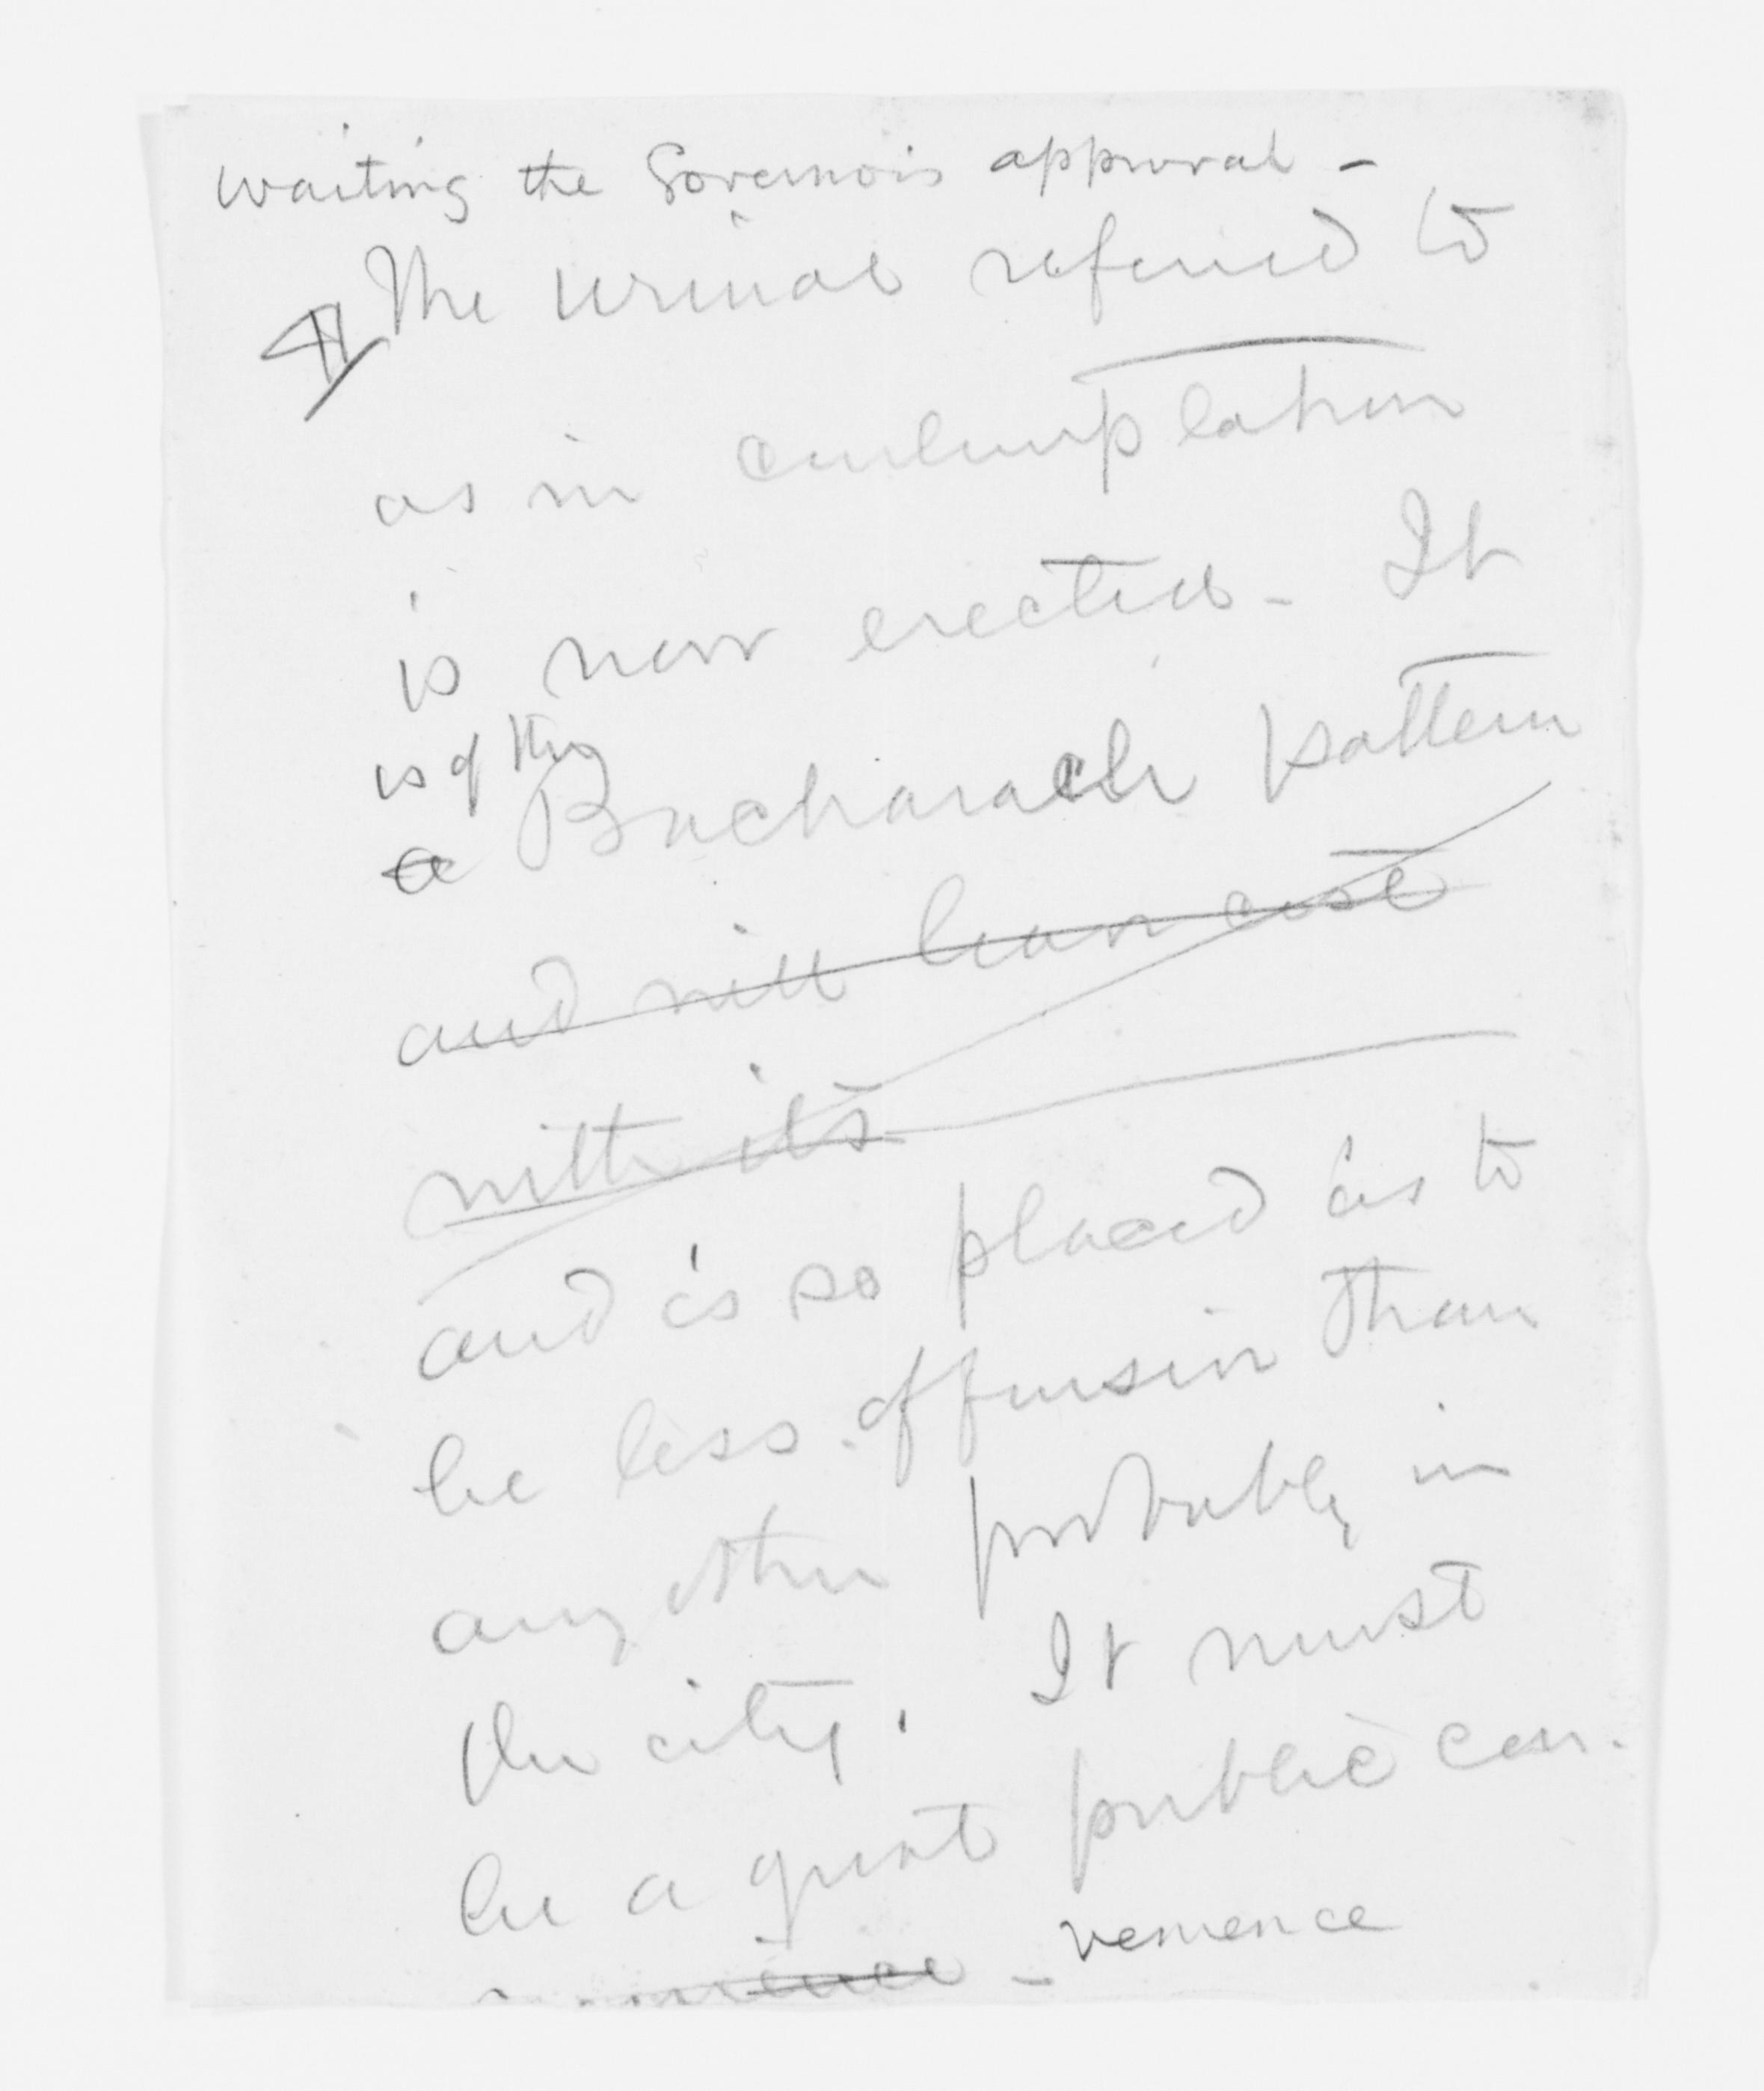 waiting the Governor's approval -
¶ The urinal referred to
as in contemplation
is now erected - It
is of the
a Bacharach pattern
and will have cost
with its
and is so placed as to
be less offensive than
any other probably in
the city. It must
be a great public con-
- venience